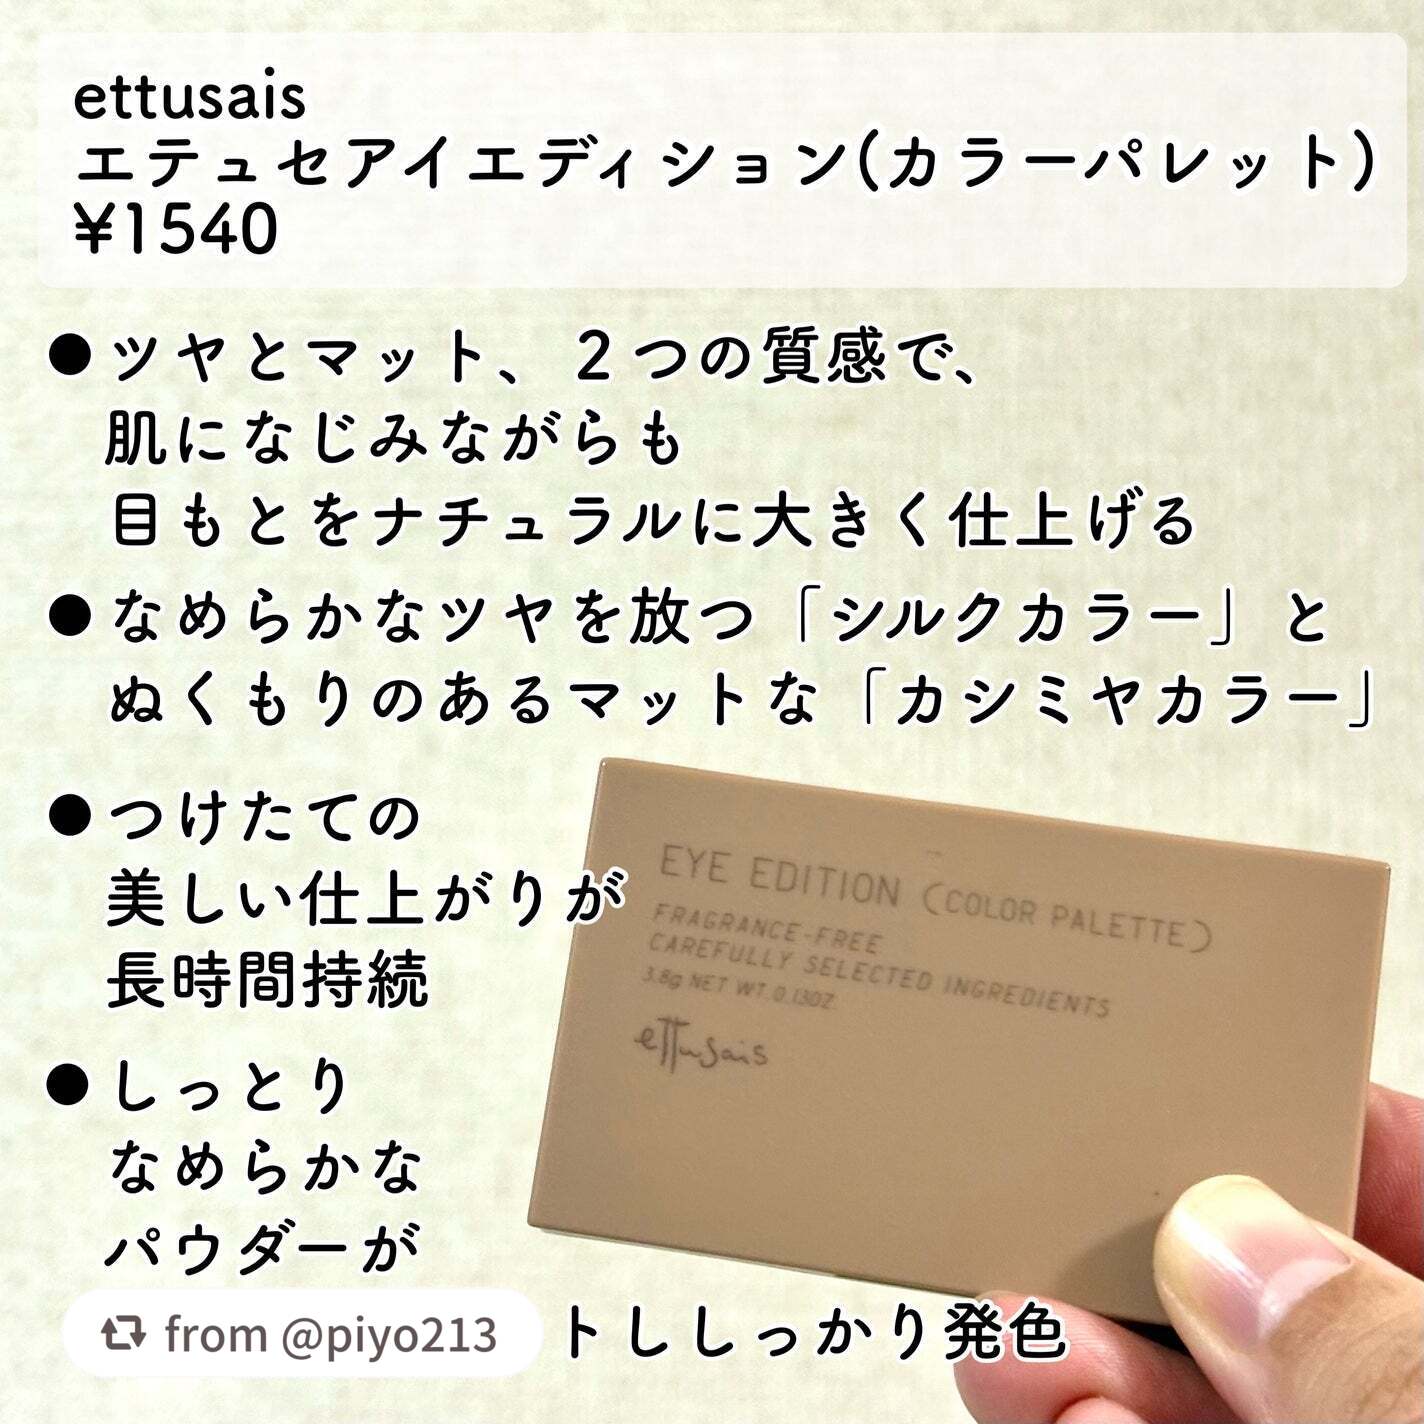 ettusais
エテュセアイエディション(カラーパレット)
¥1540
●ツヤとマット、２つの質感で、
肌になじみながらも
目もとをナチュラルに大きく仕上げる
●なめらかなツヤを放つ「シルクカラー」と
ぬくもりのあるマットな「カシミヤカラー」
●つけたての
美しい仕上がりが
長時間持続
●しっとり
なめらかな
パウダーが
トししっかり発色
from @piyo213
EYE EDITION (COLOR PALETTE)
FRAGRANCE-FREE
CAREFULLY SELECTED INGREDIENTS
3.8g NET WT. 0.13OZ.
ettusais